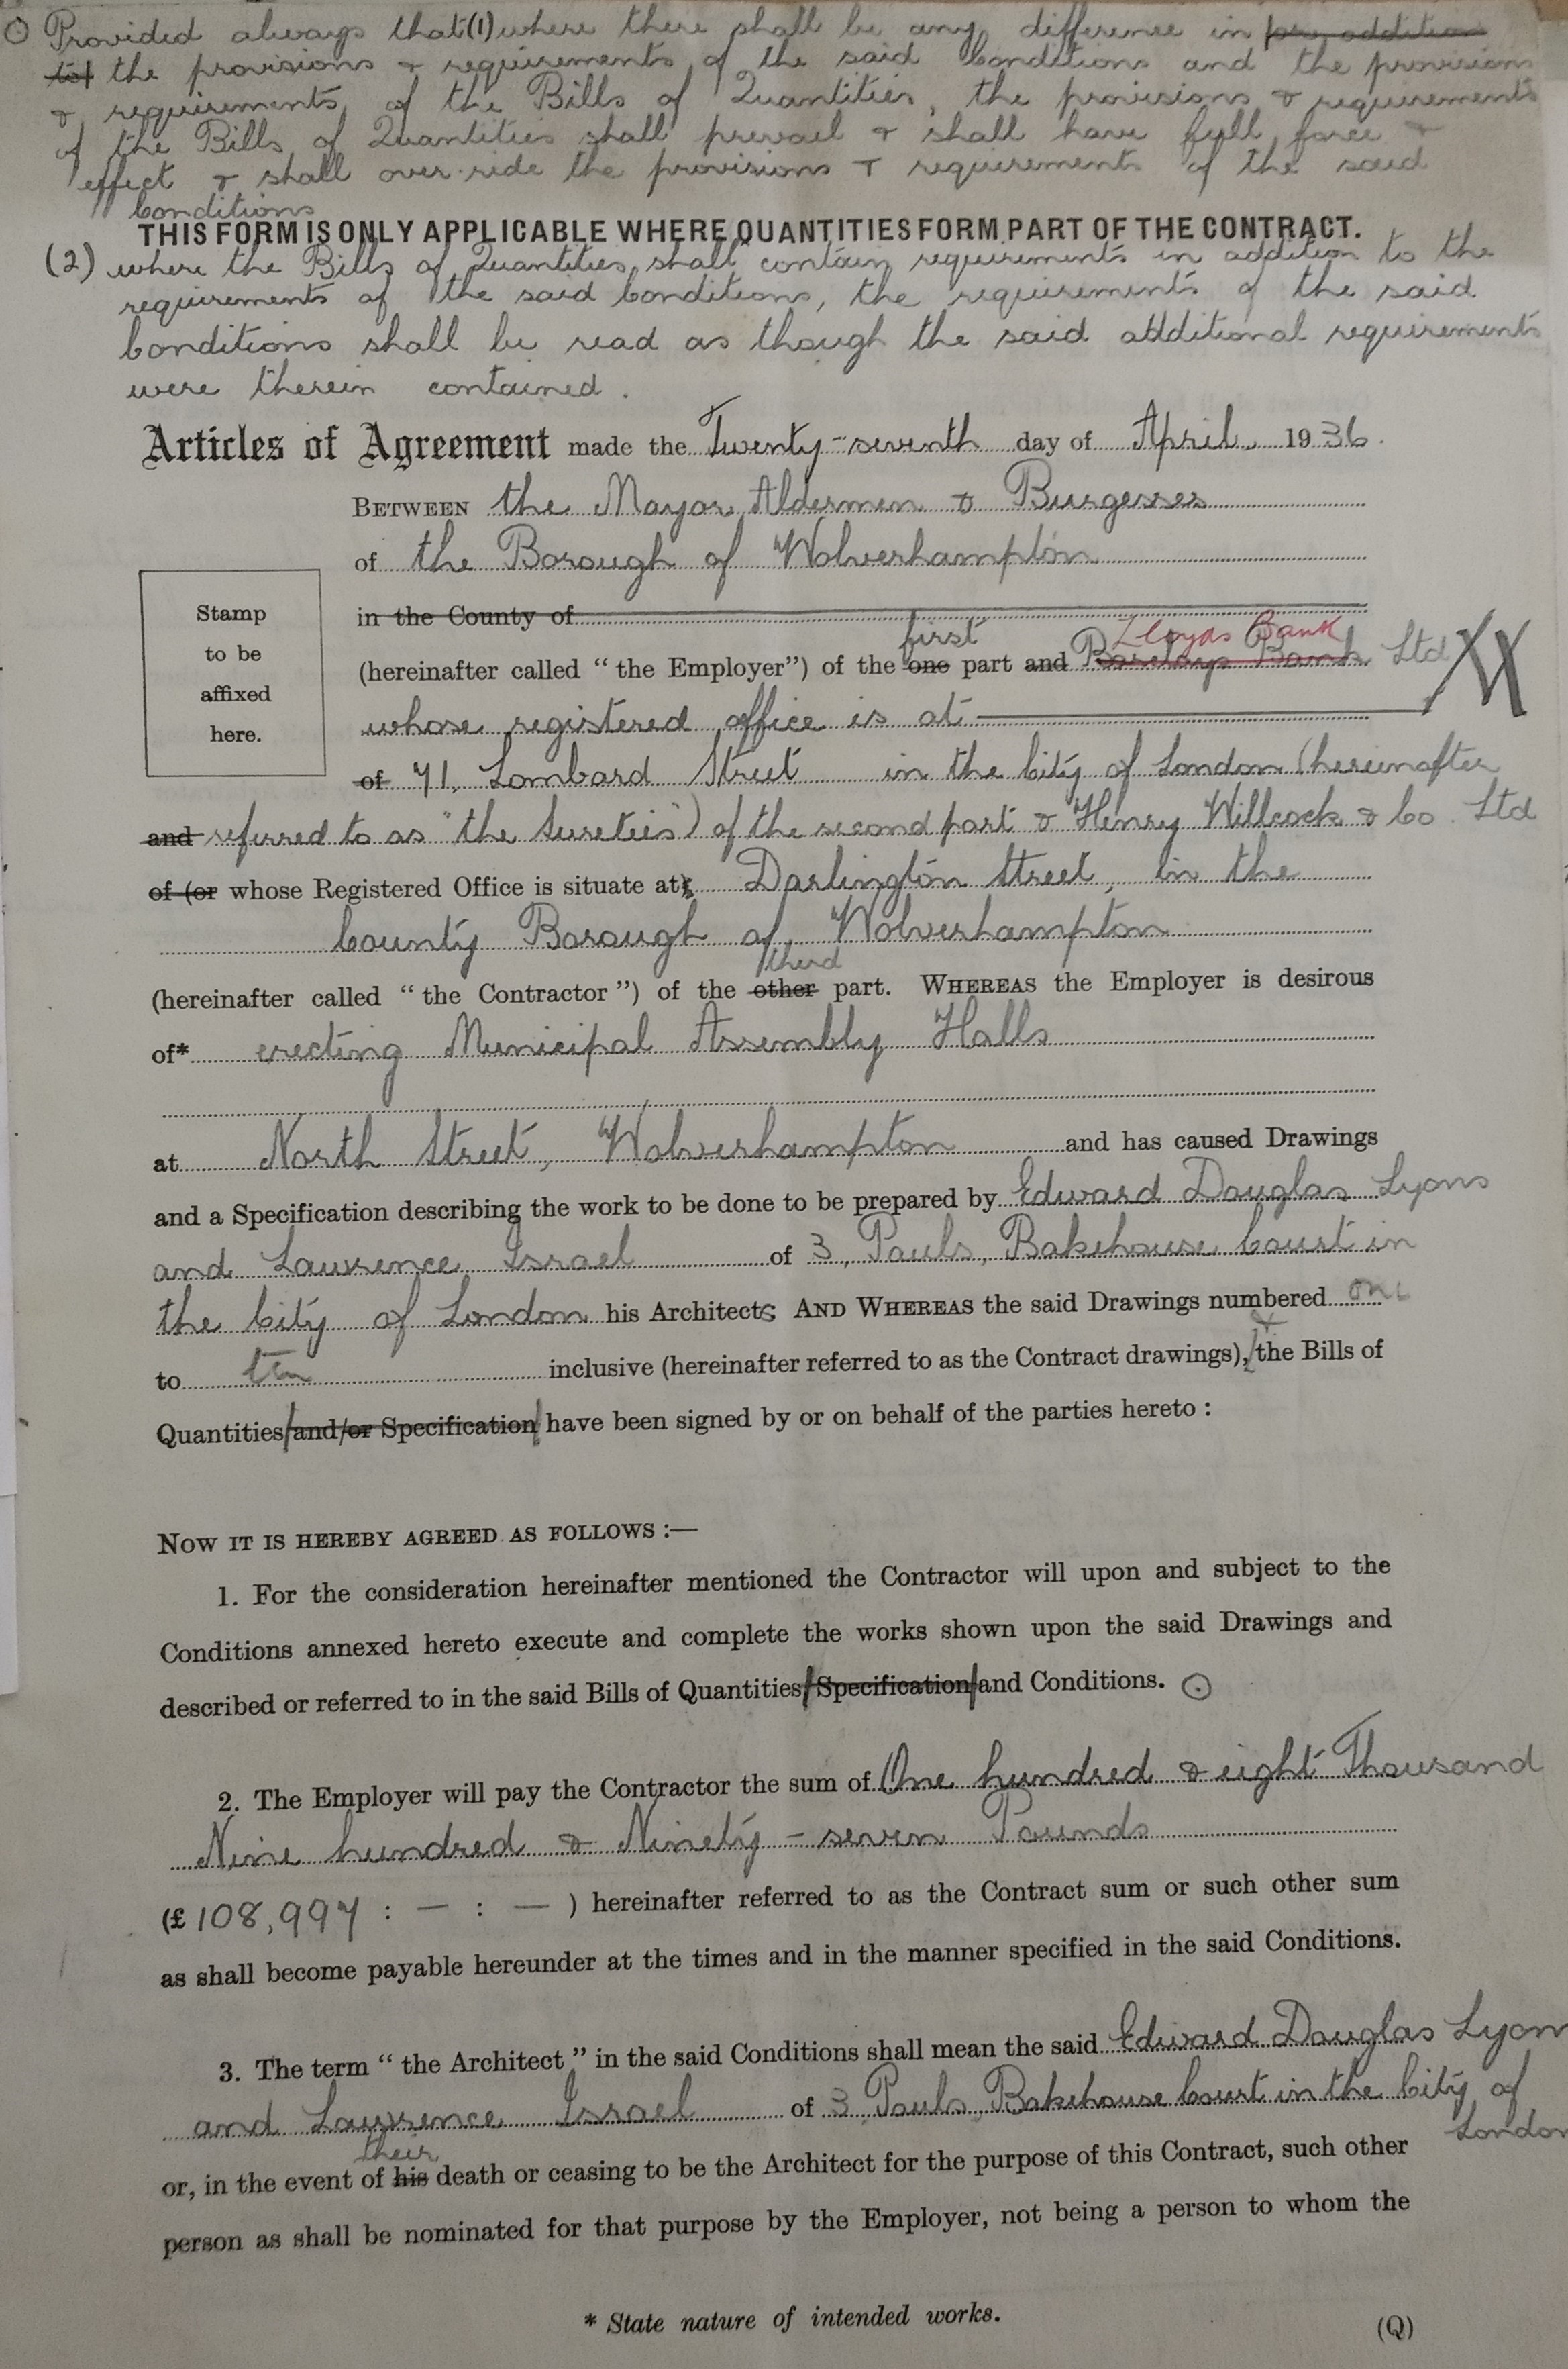 ⊙ Provided always that (1) where there shall be any difference in or in addition
to the provisions & requirements of the said Conditions and the provisions
& requirements of the Bills of Quantities, the provisions & requirements
of the Bills of Quantities shall prevail & shall have full force &
effect & shall over-ride the provisions & requirements of the said
Conditions
THIS FORM IS ONLY APPLICABLE WHERE QUANTITIES FORM PART OF THE CONTRACT.
(2) where the Bills of Quantities shall contain requirements in addition to the
requirements of the said Conditions, the requirements of the said
Conditions shall be read as though the said additional requirements
were therein contained.
Articles of Agreement made the Twenty-seventh day of April, 1936.
BETWEEN the Mayor Aldermen & Burgesses
of the Borough of Wolverhampton
in the County of
first Lloyds Bank
(hereinafter called “the Employer”) of the one part and Barclays Bank Ltd
whose registered office is at
of 71, Lombard Street in the City of London (hereinafter
and referred to as "the Sureties") of the second part & Henry Willcock & Co. Ltd
of (or whose Registered Office is situate at) Darlington Street, in the
County Borough of Wolverhampton
third
(hereinafter called “the Contractor”) of the other part. WHEREAS the Employer is desirous
of* erecting Municipal Assembly Halls
at North Street, Wolverhampton and has caused Drawings
and a Specification describing the work to be done to be prepared by Edward Douglas Lyons
and Lawrence Israel of 3, Pauls, Bakehouse Court in
the City of London his Architects AND WHEREAS the said Drawings numbered one
&
to ten inclusive (hereinafter referred to as the Contract drawings), the Bills of
Quantities and/or Specification have been signed by or on behalf of the parties hereto :
Stamp
to be
affixed
here.
NOW IT IS HEREBY AGREED AS FOLLOWS :—
1. For the consideration hereinafter mentioned the Contractor will upon and subject to the
Conditions annexed hereto execute and complete the works shown upon the said Drawings and
described or referred to in the said Bills of Quantities Specification and Conditions. ⊙
2. The Employer will pay the Contractor the sum of One hundred & eight Thousand
Nine hundred & Ninety-seven Pounds
(£108,997 : — : — ) hereinafter referred to as the Contract sum or such other sum
as shall become payable hereunder at the times and in the manner specified in the said Conditions.
3. The term “the Architect” in the said Conditions shall mean the said Edward Douglas Lyon
and Lawrence Israel of 3 Pauls, Bakehouse Court in the City of
London
their
or, in the event of his death or ceasing to be the Architect for the purpose of this Contract, such other
person as shall be nominated for that purpose by the Employer, not being a person to whom the
* State nature of intended works.
(Q)